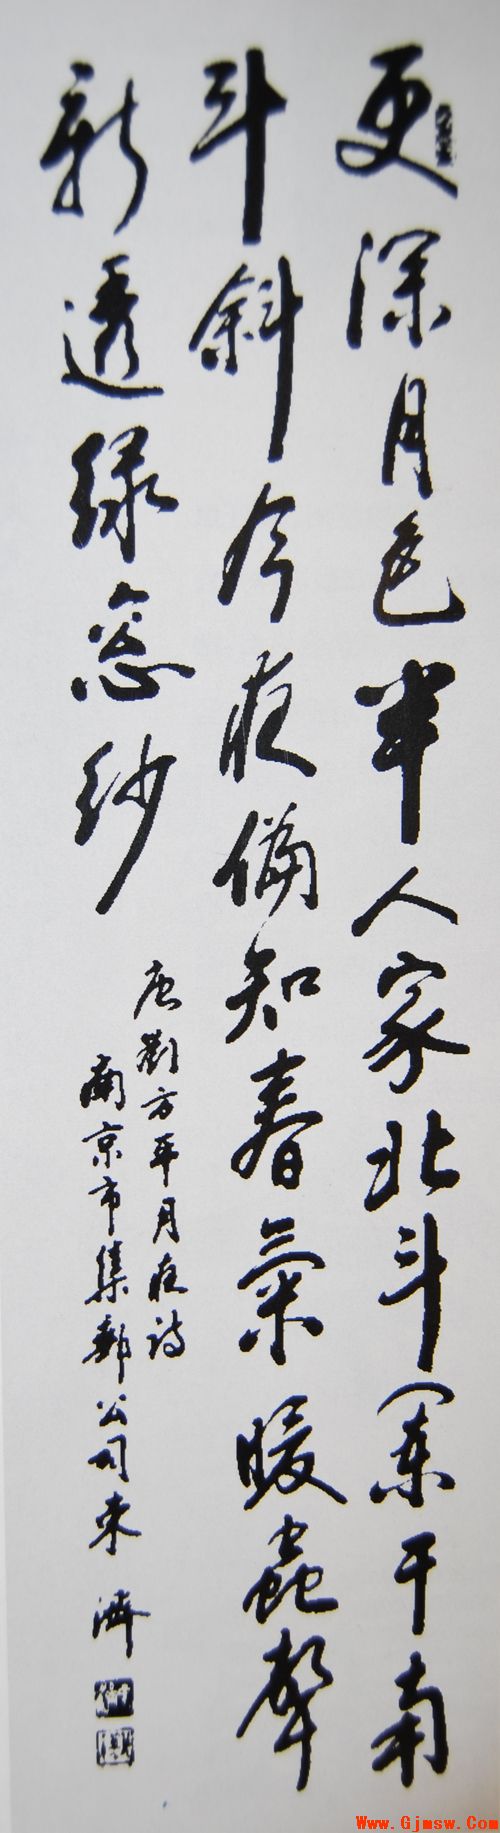 更深月色半人家北斗阑干南
斗斜今夜偏知春氣暖蟲聲
新透绿窓纱
唐劉方平月夜诗
南京市集郵公司朱 濟
Www.Gjmsw.Com